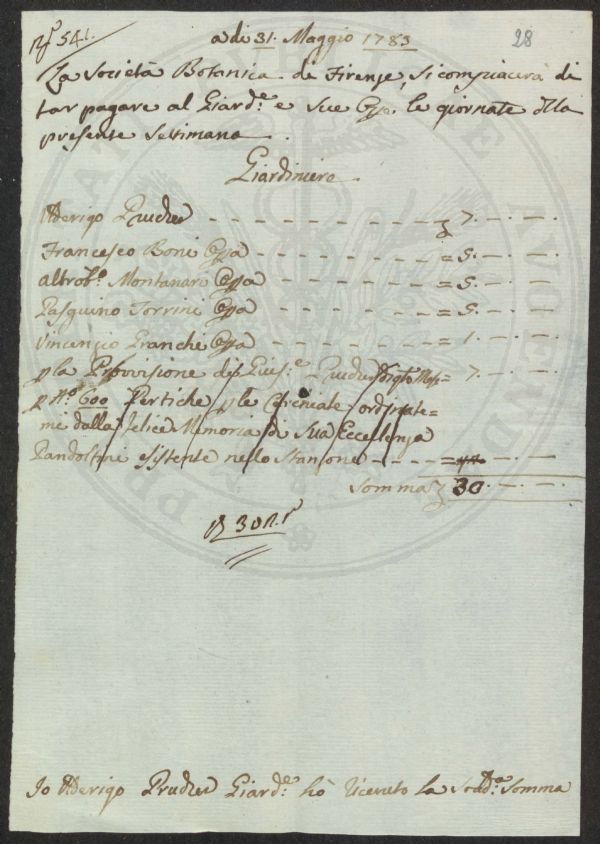 541.
a di 31. Maggio 1783
28
La Società Botanica di Firenze, si compiacerà di
far pagare al Giard.e e sue Opp. le giornate della
presente Settimana.
Giardiniere
Aderigo Prucher - - - - - - - 7. - . -
Francesco Boni Oppa - - - - - - = 5. - . -
Montanari Oppa - - - - - - = 5. - . -
Pasquino Torrini Oppa - - - - - - = 5. - . -
Vincenzio Franchi Oppa - - - - - - = 1. - . -
p la Provisione di Prucher = 7. - . -
p N.o 600 Pertiche p le ordinate=
mi dalla felice Memoria di Sua Eccellenza
Pandolfini esistente nello Stanzone - - - - = - . -
Somma 30 - . -
30
Io Aderigo Prucher Giard.e hò Riceuto la Sodd.a Somma